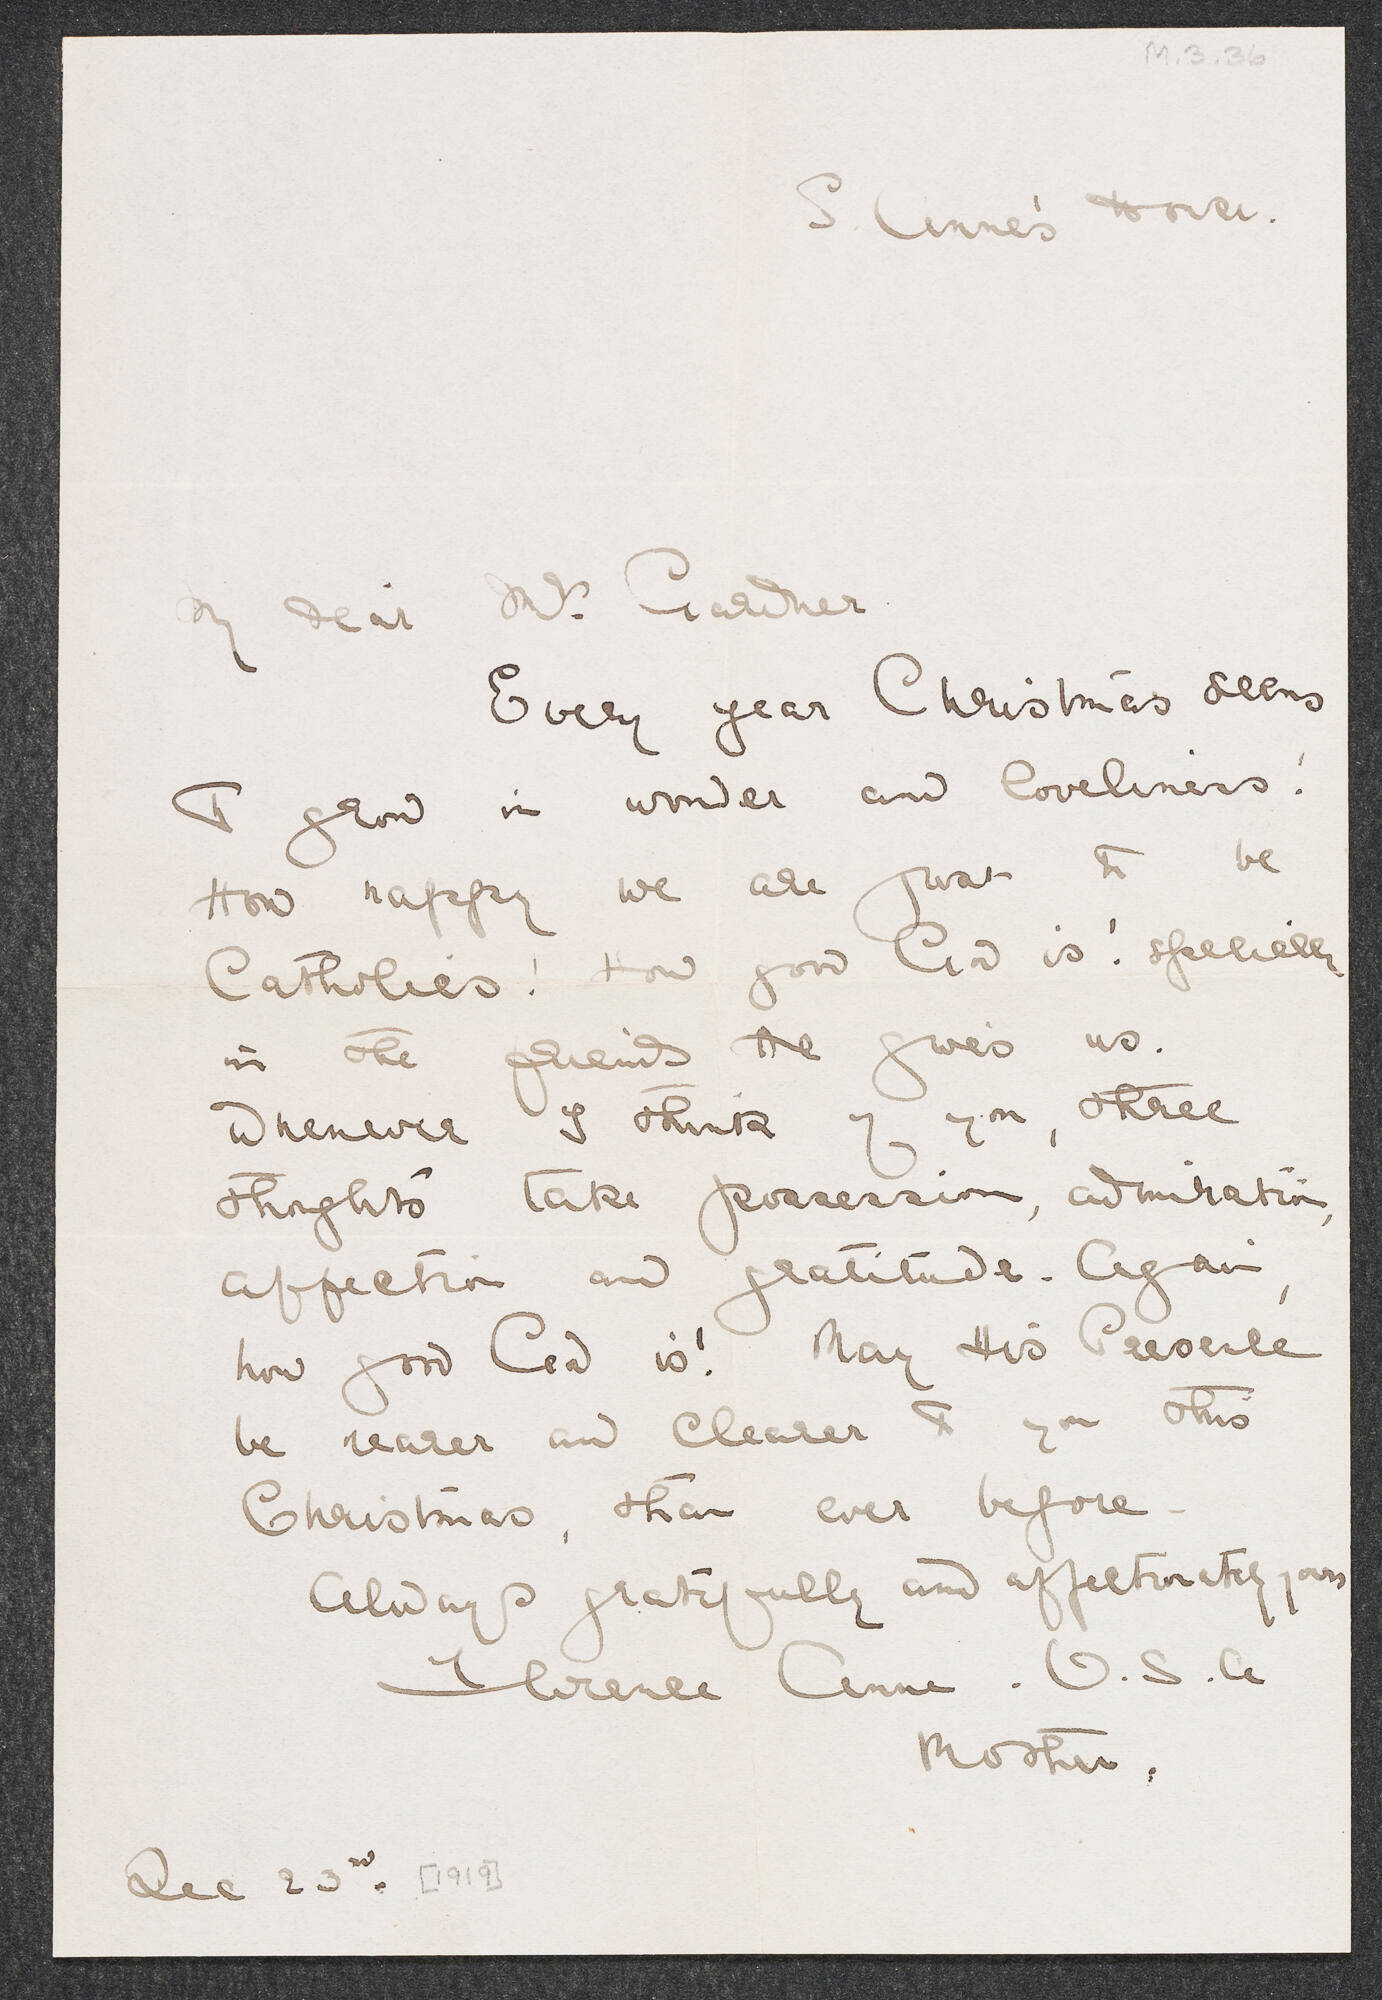 M.3.36
S. Anne's House.
My dear Mrs. Gardner
Every year Christmas seems
to grow in wonder and loveliness!
How happy we are just to be
Catholics! How good God is! specially
in the friends He gives us.
Whenever I think of you, three
thoughts take possession, admiration,
affection and gratitude. Again,
how good God is! May His Presence
be nearer and clearer to you this
Christmas, than ever before -
Always gratefully and affectionately yours
Florence Anne . O.S.A
Mother.
Dec 23rd. [1919]